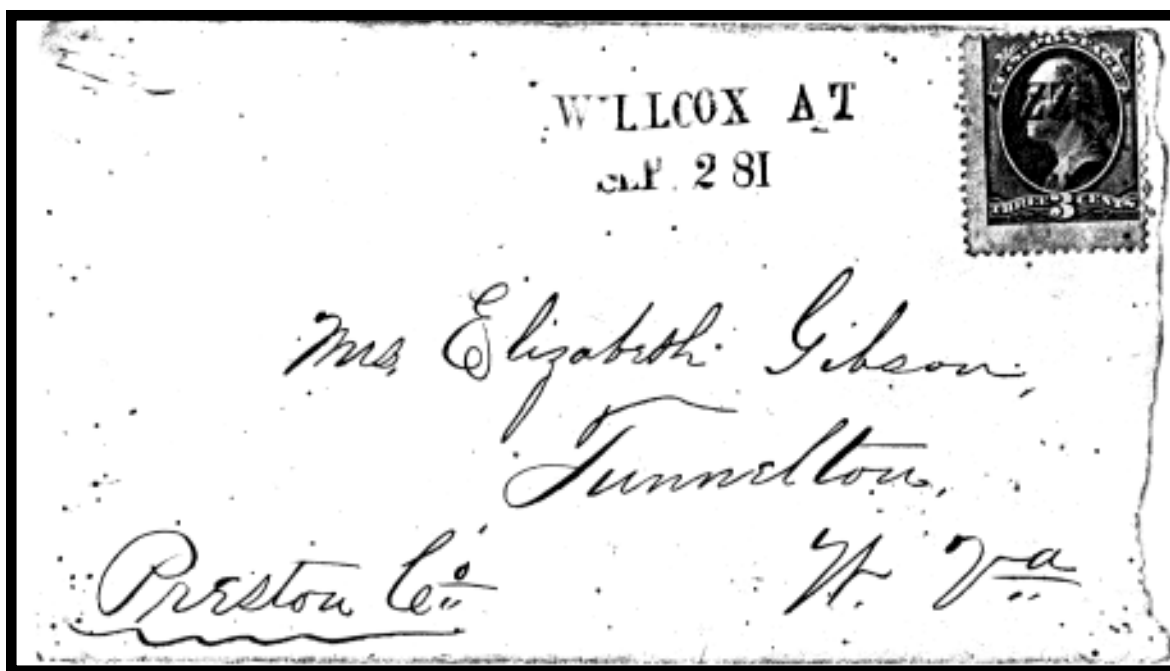 WILLCOX A.T
SEP. 2 81
ZZ
THREE 3 CENTS
Mrs. Elizabeth Gibson,
Tunnelton,
W. Va
Preston Co